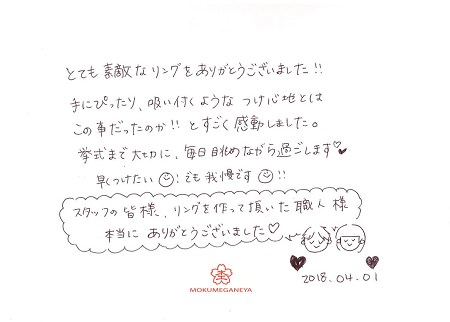 とても素敵なリングをありがとうございました!!
手にぴったり、吸い付くような つけ心地とは
この事だったのか!! とすごく感動しました。
挙式まで大切に、毎日眺めながら過ごします♡♥
早くつけたい☺! でも我慢です☺!!
スタッフの皆様、リングを作って頂いた職人様
本当に ありがとうございました♡
2018.04.01
MOKUMEGANEYA